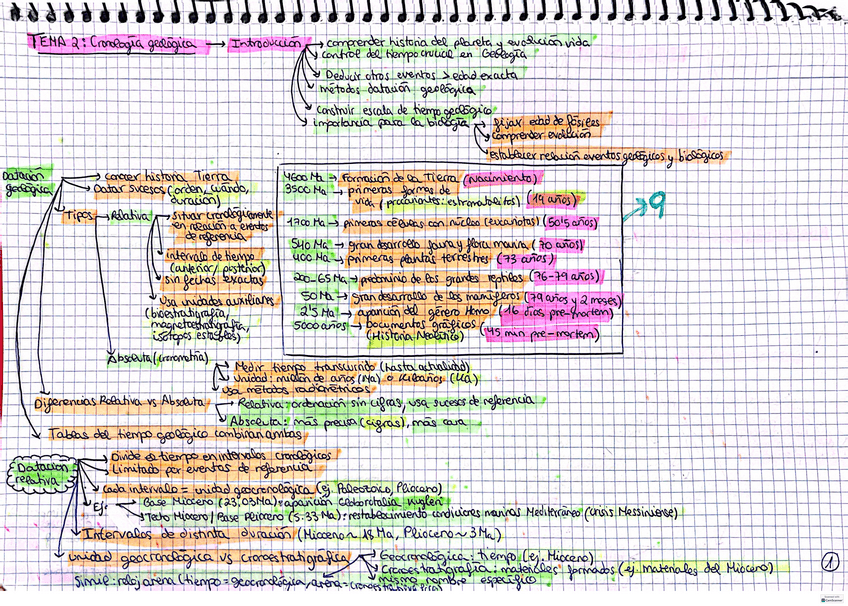 TEMA 2: Cronología geológica → Introducción → comprender historia del planeta y evolución vida
control del tiempo crucial en Geología
Deducir otros eventos > edad exacta
métodos datación geológica
Construir escala de tiempo geológico
importancia para la biología → fijar edad de fósiles
comprender evolución
establecer relación eventos geológicos y biológicos
Datación geológica → conocer historia Tierra
Datar sucesos (orden, cuándo, duración)
Tipos → Relativa → situar cronológicamente
en relación a eventos
de referencia
intervalo de tiempo
(anterior / posterior)
sin fechas exactas
usa unidades auxiliares
(bioestratigrafía,
magnetoestratigrafía,
isótopos estables)
4600 Ma → Formación de la Tierra (nacimiento)
3500 Ma → primeras formas de
vida (procariontes: estromatolitos) (19 años)
1700 Ma → primeras células con núcleo (eucariotas) (50'5 años)
540 Ma → gran desarrollo fauna y flora marina (70 años)
400 Ma → primeras plantas terrestres (73 años)
200-65 Ma → predominio de los grandes reptiles (76-79 años)
50 Ma → gran desarrollo de los mamíferos (79 años y 2 meses)
2'5 Ma → aparición del género Homo (16 días pre-mortem)
5000 años → documentos gráficos
(Historia Neolítico) (45 min pre-mortem)
→ 9
Absoluta (cronometría)
Medir tiempo transcurrido (hasta actualidad)
Unidad: millón de años (Ma) o Kiloaños (Ka)
usa métodos radiométricos
Diferencias Relativa vs Absoluta → Relativa: ordenación sin cifras, usa sucesos de referencia
Absoluta: más precisa (cifras), más cara
Tablas del tiempo geológico combinan ambas
Datación relativa → Divide el tiempo en intervalos cronológicos
Limitado por eventos de referencia
Cada intervalo = unidad geocronológica (ej. Paleozoico, Plioceno)
Ej: → Base Mioceno (23,03 Ma): aparición
Techo Mioceno / Base Plioceno (5.33 Ma): restablecimiento condiciones marinas Mediterráneo (crisis Messiniense)
Intervalos de distinta duración (Mioceno ~ 18 Ma, Plioceno ~ 3 Ma)
unidad geocronológica vs cronoestratigráfica → Geocronológica: tiempo (ej. Mioceno)
Cronoestratigrafía: materiales formados (ej. materiales del Mioceno)
mismo nombre específico
Símil: reloj arena (tiempo = geocronológica, arena = cronoestratigráfica)
1
CamScanner